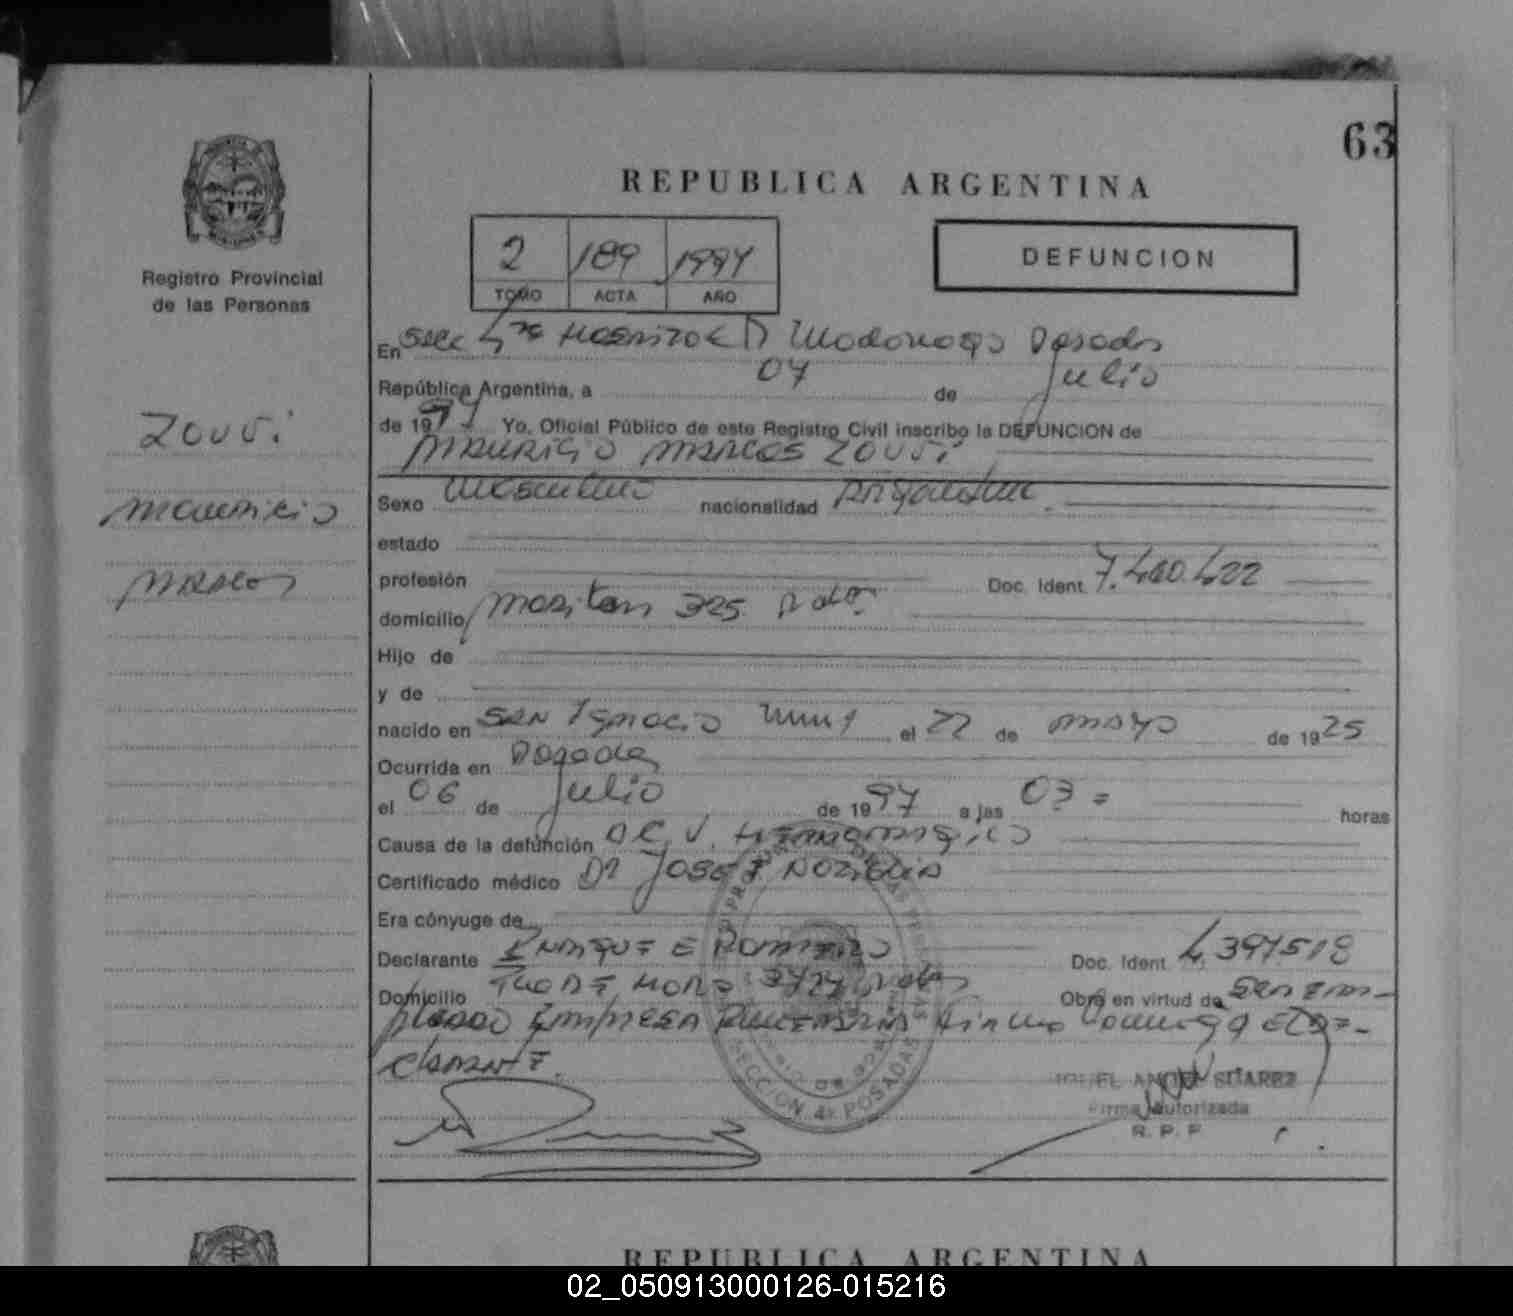 63
REPUBLICA ARGENTINA
2 189 1997
TOMO ACTA AÑO
DEFUNCION
Registro Provincial
de las Personas
Zouvi
Mauricio
Marcos
En Secc 4ta Hospital D Madariaga Posadas
República Argentina, a 07 de Julio
de 1997 Yo, Oficial Público de este Registro Civil inscribo la DEFUNCION de
Mauricio Marcos Zouvi
Sexo masculino nacionalidad Argentina
estado
profesión Doc. Ident. 7.460.422
domicilio 325 Pdas
Hijo de
y de
nacido en San Ignacio Mnes el 22 de mayo de 1925
Ocurrida en Posadas
el 06 de Julio de 1997 a las 03 = horas
Causa de la defunción A C V. Hemorragico
Certificado médico Dr Jose
Era cónyuge de
Declarante Enrique E Ramirez Doc. Ident. 4.397.518
Domicilio Pdas Obra en virtud de ser em-
pleado Empresa firma Conmigo el De-
clarante.
SECCION 4a POSADAS
MIGUEL ANGEL SUAREZ
Firma Autorizada
R. P. P.
REPUBLICA ARGENTINA
02_050913000126-015216